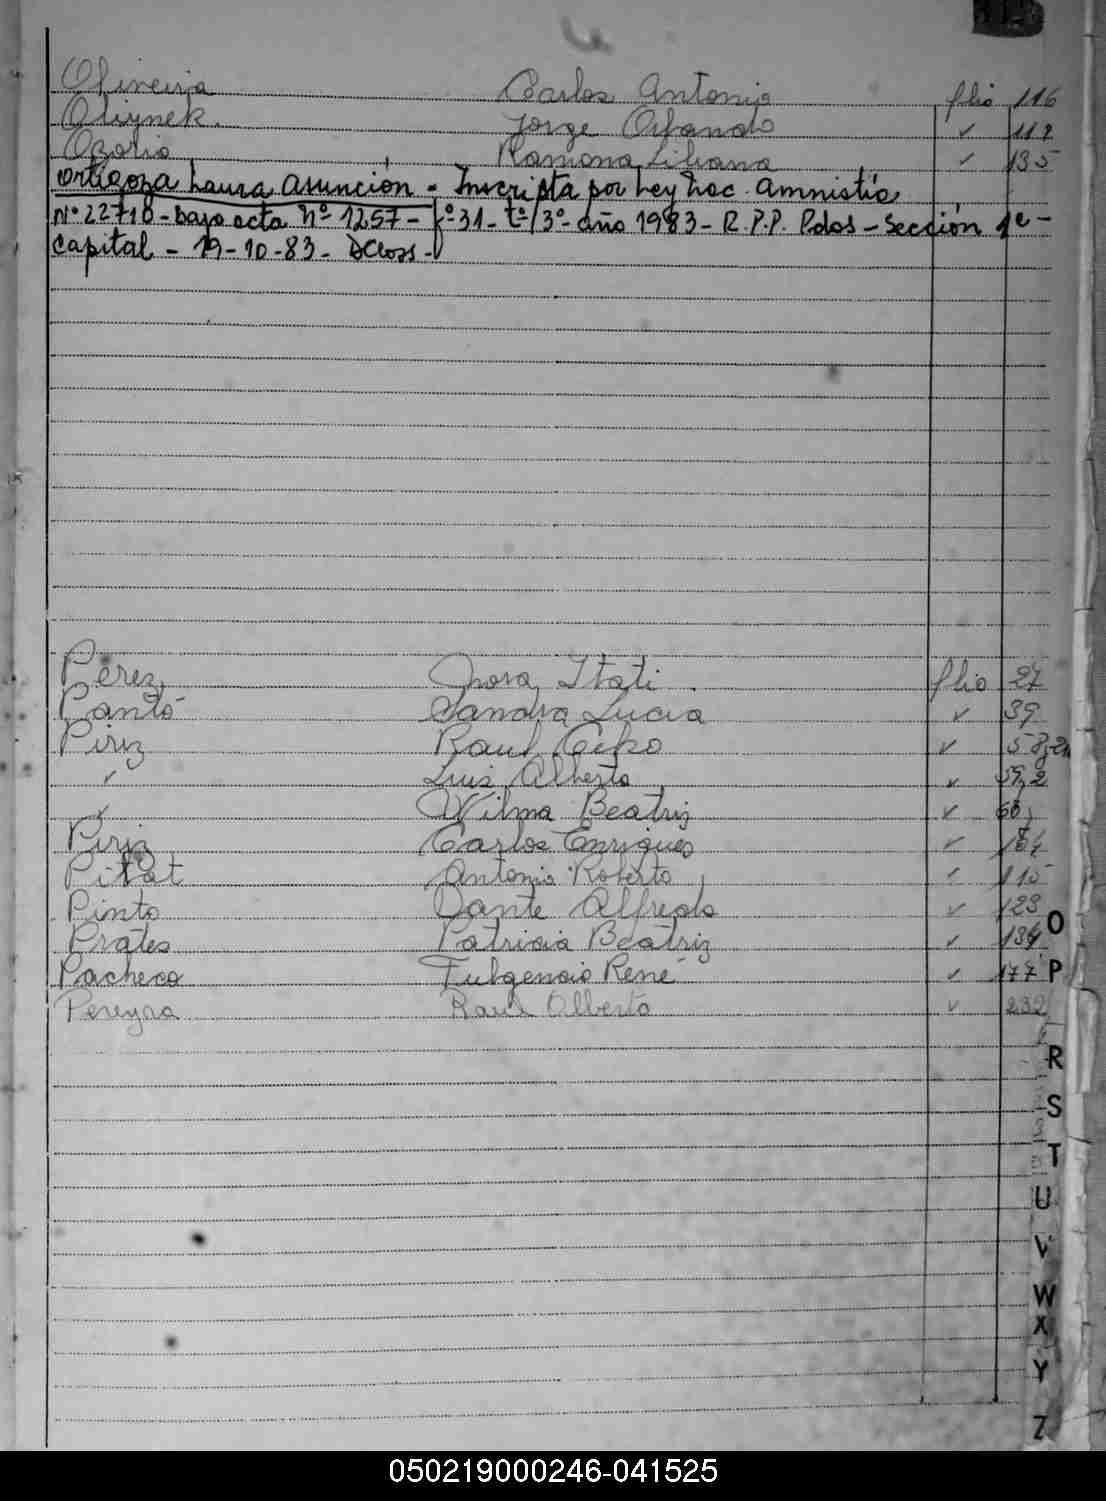 Oliveira Carlos Antonio flio 116
Oliynek. Jorge Orlando ✓ 112
Ozorio Ramona Liliana ✓ 135
Ortigoza Laura Asunción - Inscripta por Ley Nac. Amnistía
Nº 22718 - bajo acta Nº 1257 - fº 31 - tº 3º - año 1983 - R.P.P. Pdas - Sección 1ª -
Capital - 19-10-83 -
Perez Itati flio 27
Pantó Sandra Lucia ✓ 39
Piriz Raul ✓ 58
✓ Luis Alberto ✓ 59
✓ Wilma Beatriz ✓ 60
Piriz Carlos Enrique ✓ 104
Antonio Roberto ✓ 115
Pinto Dante Alfredo ✓ 123
Prates Patricia Beatriz ✓ 134
Pacheco Fulgencio René ✓ 177
Pereyra Raul Alberto ✓ 232
O
P
R
S
T
U
V
W
X
Y
Z
050219000246-041525